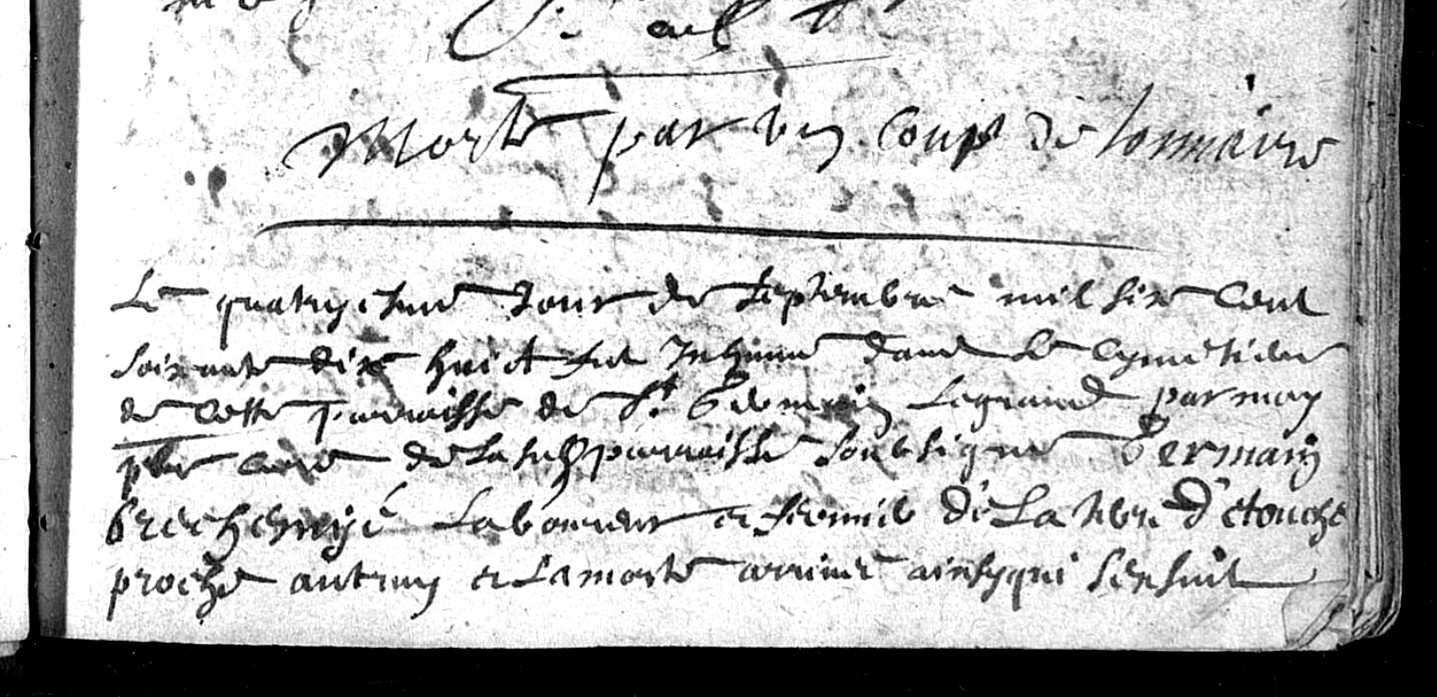 Morte par un coup de tonnaire
Le quatryesme Jour de Septembre mil six Cent
soixante dix huict fut Inhumé dans Le Cymetiere
de Cette parroisse de St Germain Legrand par moy
pbr curé de La susd parroisse soubsigné Germain
brechemyé Laboureur et fermié de La terre d'étouche
proche autruy et La morte arrivée ainsy qui s'ensuit